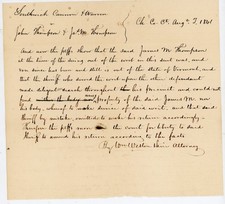 Southwick Cannon & Warren
Ch Co. Ct. Aug. T. 1861
John Thompson & Jas. M. Thompson
And now the plffs show that the said James M Thompson
at the time of the suing out of the writ in this suit was, and
ever since has been and still is out of the state of Vermont, and
that the sheriff who served the writ upon the other defendant
made diligent search throughout his precinct and could not
find property of the said James M nor
his body, whereof to make service of said writ, and that said
sheriff by mistake omitted to make his return accordingly -
Wherefore the plffs move the court for liberty to said
sheriff to amend his return according to the facts
By Attorney